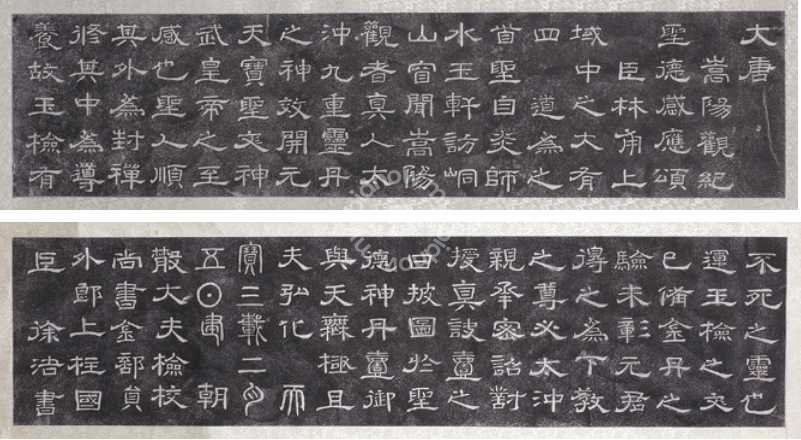 大唐
嵩陽觀紀
聖德感應頌
臣林甫上
域中之大有
四 道為之
首聖自炎師
水玉軒訪峒
山窅聞嵩陽
觀者真人太
沖九重靈丹
之神效開元
天寶聖文神
武皇帝之至
感也聖人順
其外為封禪
修其中為導
養故玉檢有
不死之靈也
運玉檢之文
已備金丹之
驗未彰元君
得之為下教
之尊必太沖
親承密詔對
授真訣之
曰披圖於聖
德神丹御
與天無極且
夫弘化 而
寶三載二月
五日建 朝
散大夫檢校
尚書金部員
外郎上柱國
臣 徐浩書